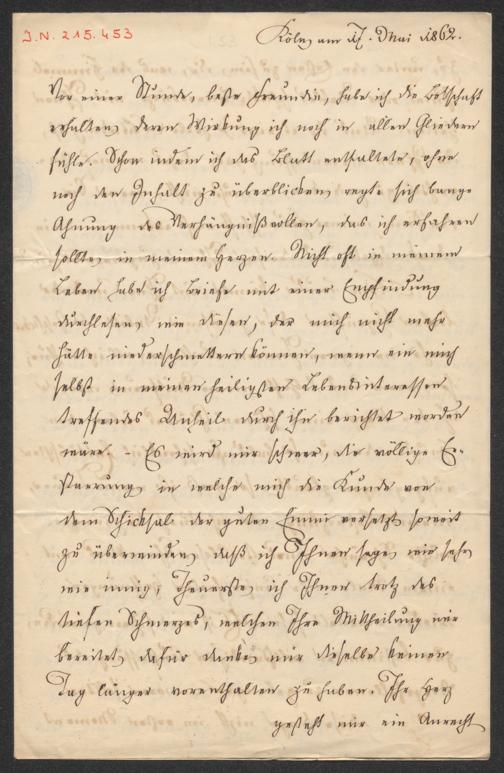 J.N. 215.453
Köln, am 17. Mai 1862.
Vor einer Stunde, beste Freundin, habe ich die Botschaft
erhalten, deren Wirkung ich noch in allen Gliedern
fühle. Schon indem ich das Blatt entfaltete, ohne
noch den Inhalt zu überblicken, regte sich bange
Ahnung des Verhängnißvollen, das ich erfahren
sollte, in meinem Herzen. Nicht oft in meinem
Leben habe ich Briefe mit einer Empfindung
durchlesen, wie diesen, der mich nicht mehr
hätte niederschmettern können, wenn ein mich
selbst in meinen heiligsten Lebensinteressen
treffendes Unheil durch ihn berichtet worden
wäre. – Es wird mir schwer, die völlige Er-
starrung, in welche mich die Kunde von
dem Schicksal der guten Emmi versetzt, soweit
zu überwinden, daß ich Ihnen sage, wie sehr
wie innig, Theuerste, ich Ihnen trotz des
tiefen Schmerzes, welchen Ihre Mittheilung mir
bereitet, dafür danke, mir dieselbe keinen
Tag länger vorenthalten zu haben. Ihr Herz
gesteht mir ein Anrecht